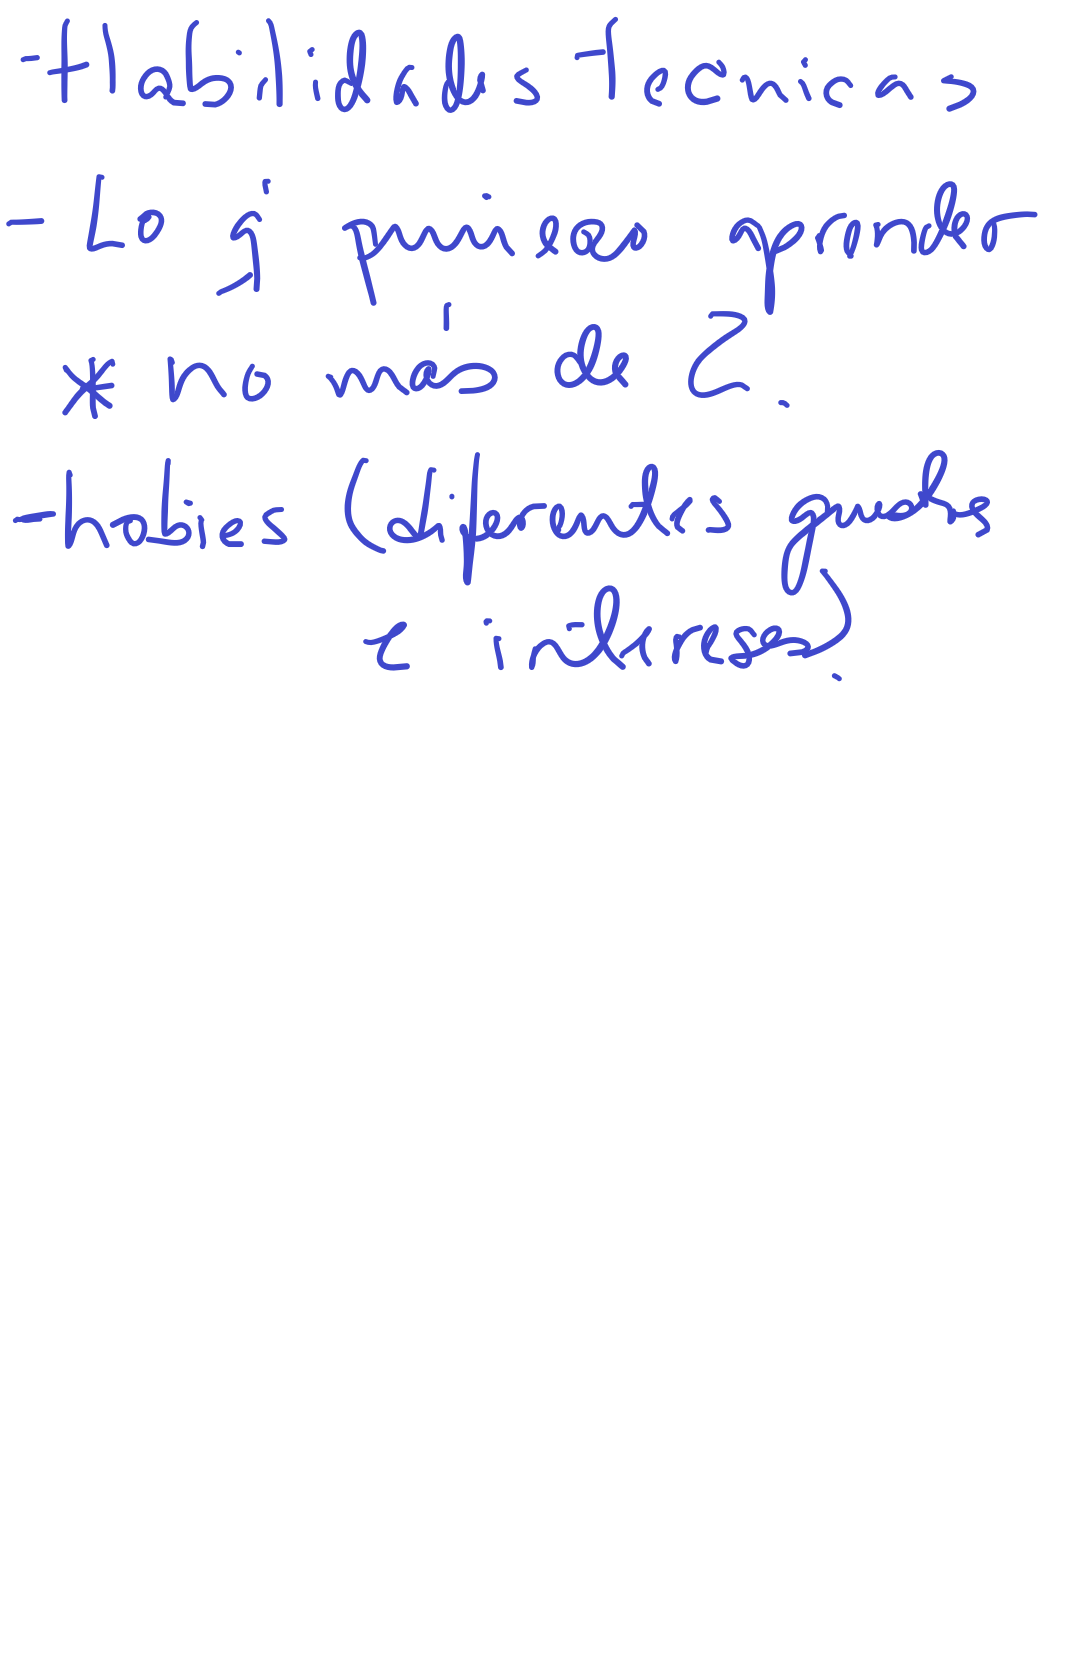 - Habilidades Tecnicas
- Lo q aprender
* no más de 2.
- hobies (diferentes
e intereses).